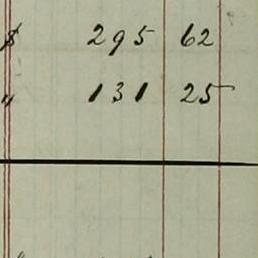 $ 295 62
" 131 25